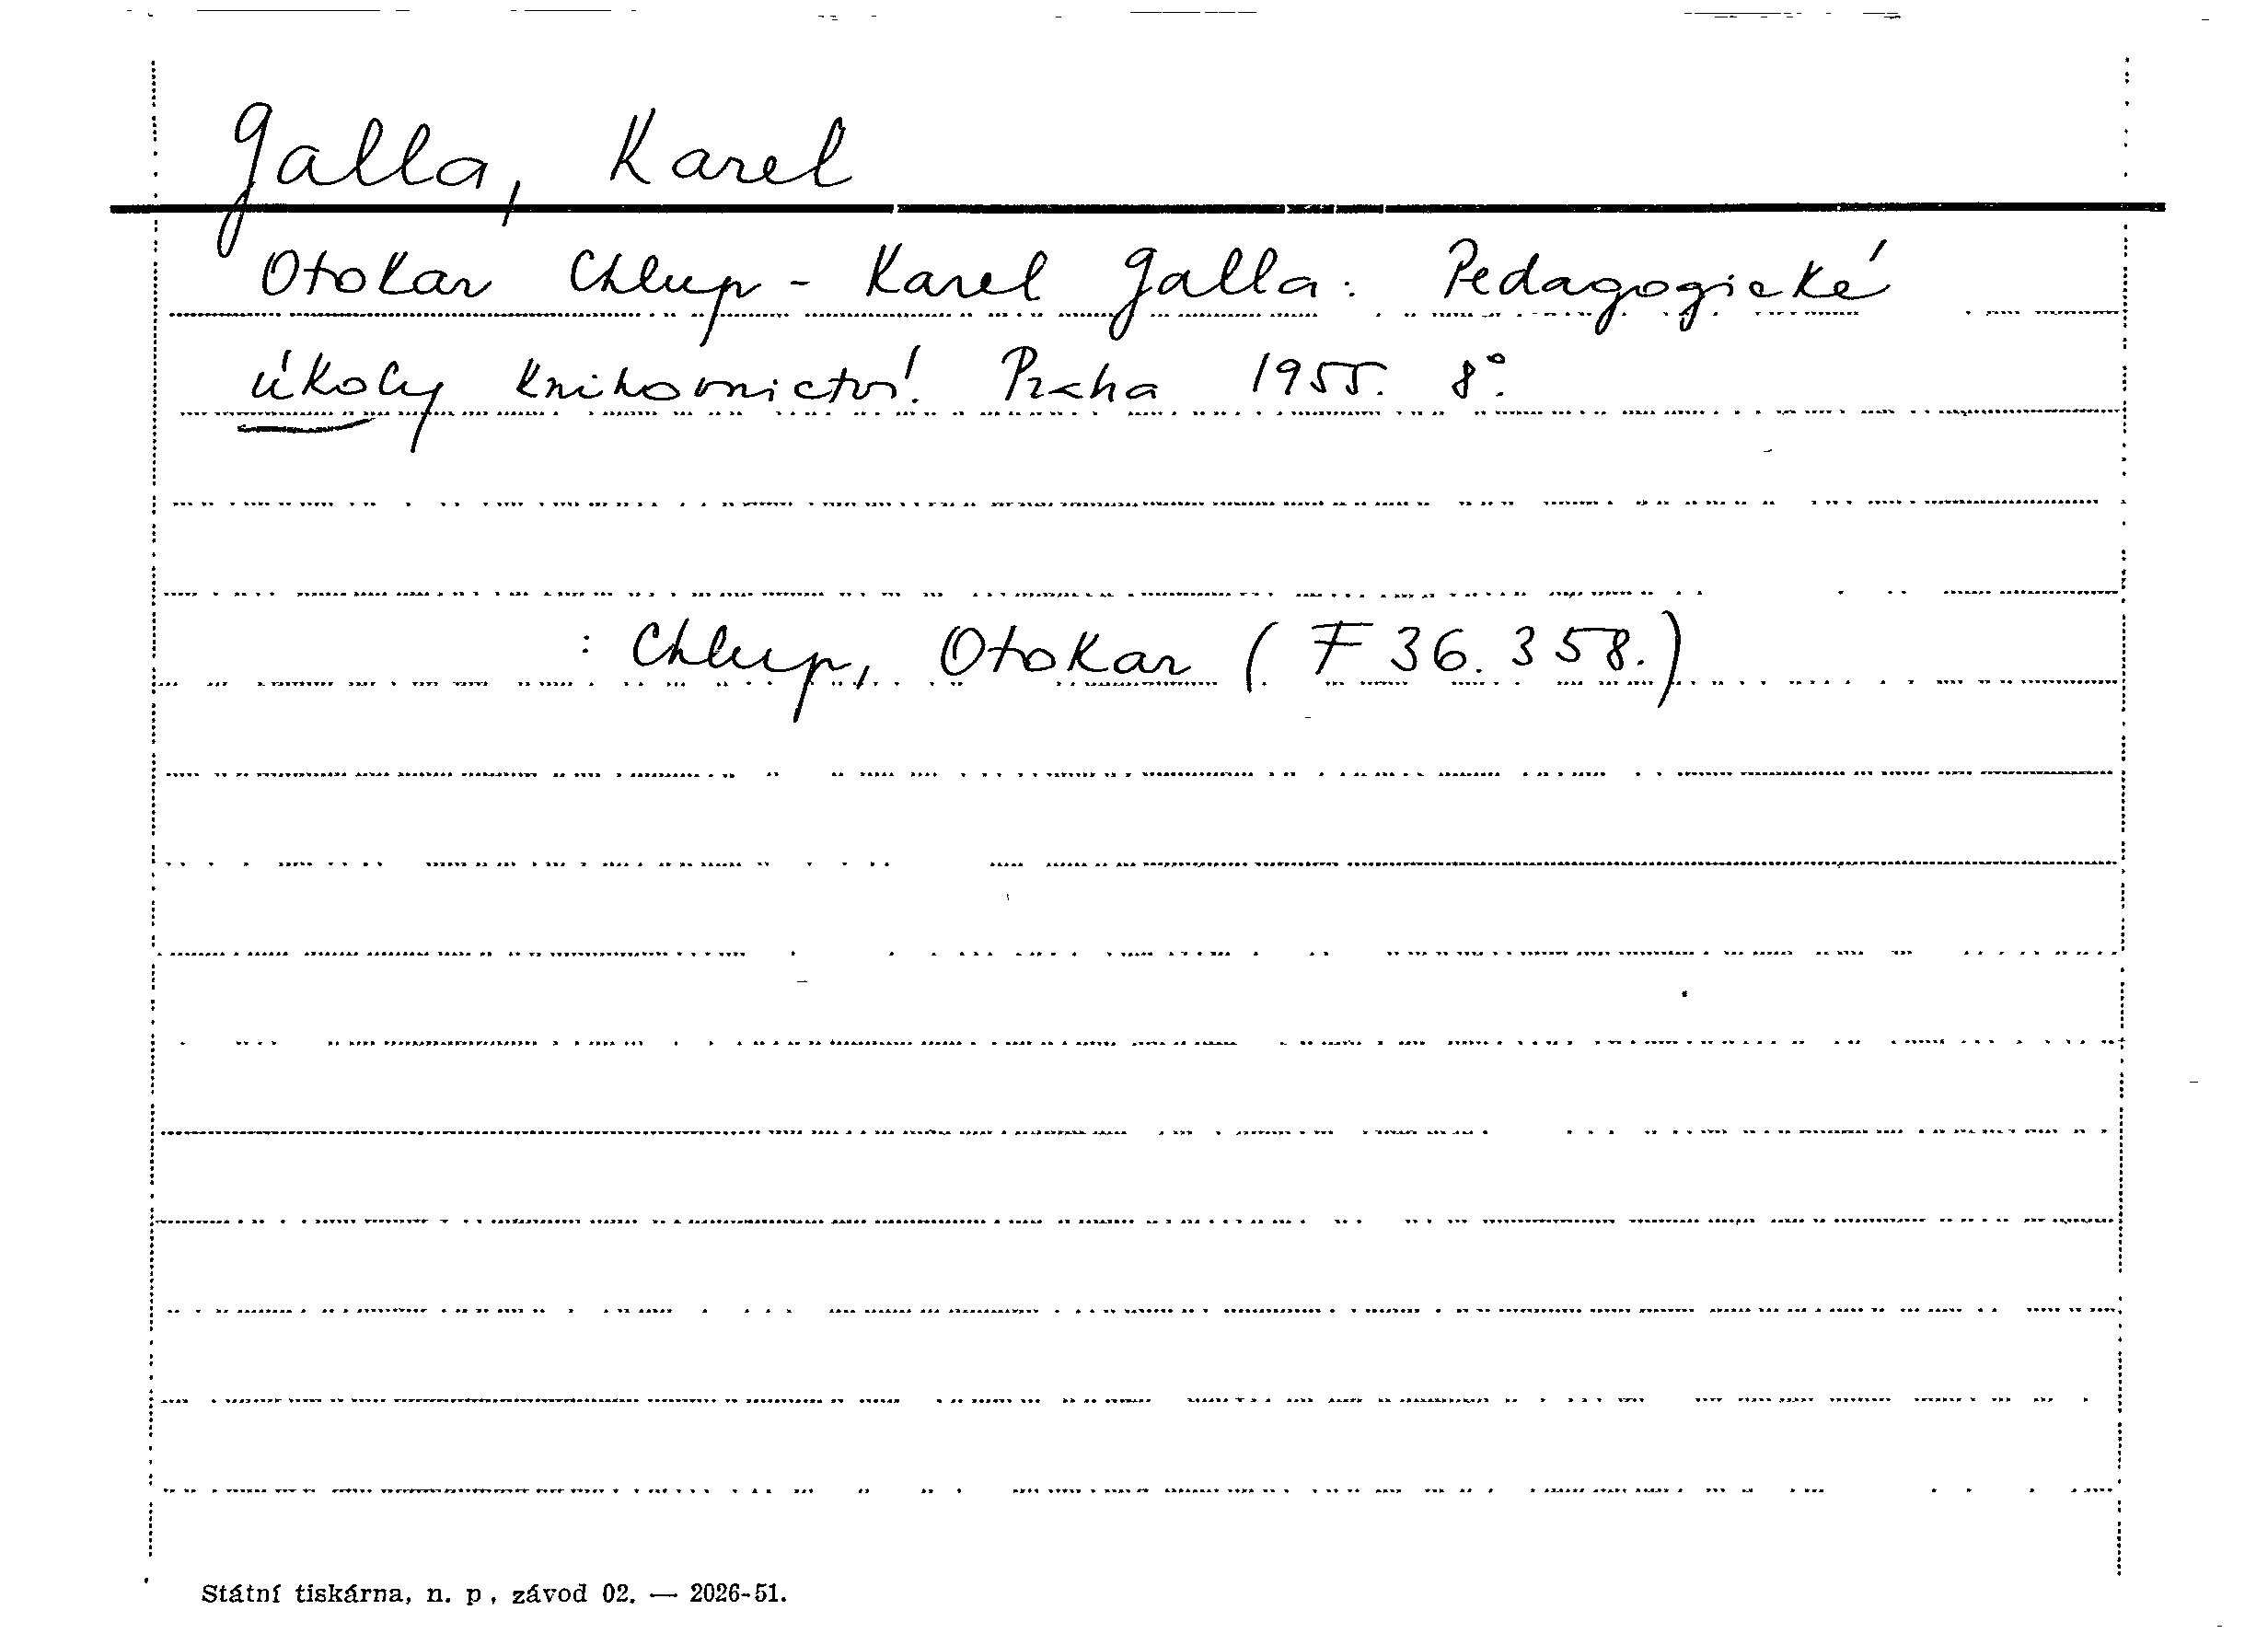 Galla, Karel
Otokar Chlup - Karel Galla: Pedagogické
úkoly knihovnictví. Praha 1955. 8°.
: Chlup, Otokar (F 36.358.)
Státní tiskárna, n. p., závod 02. — 2026-51.